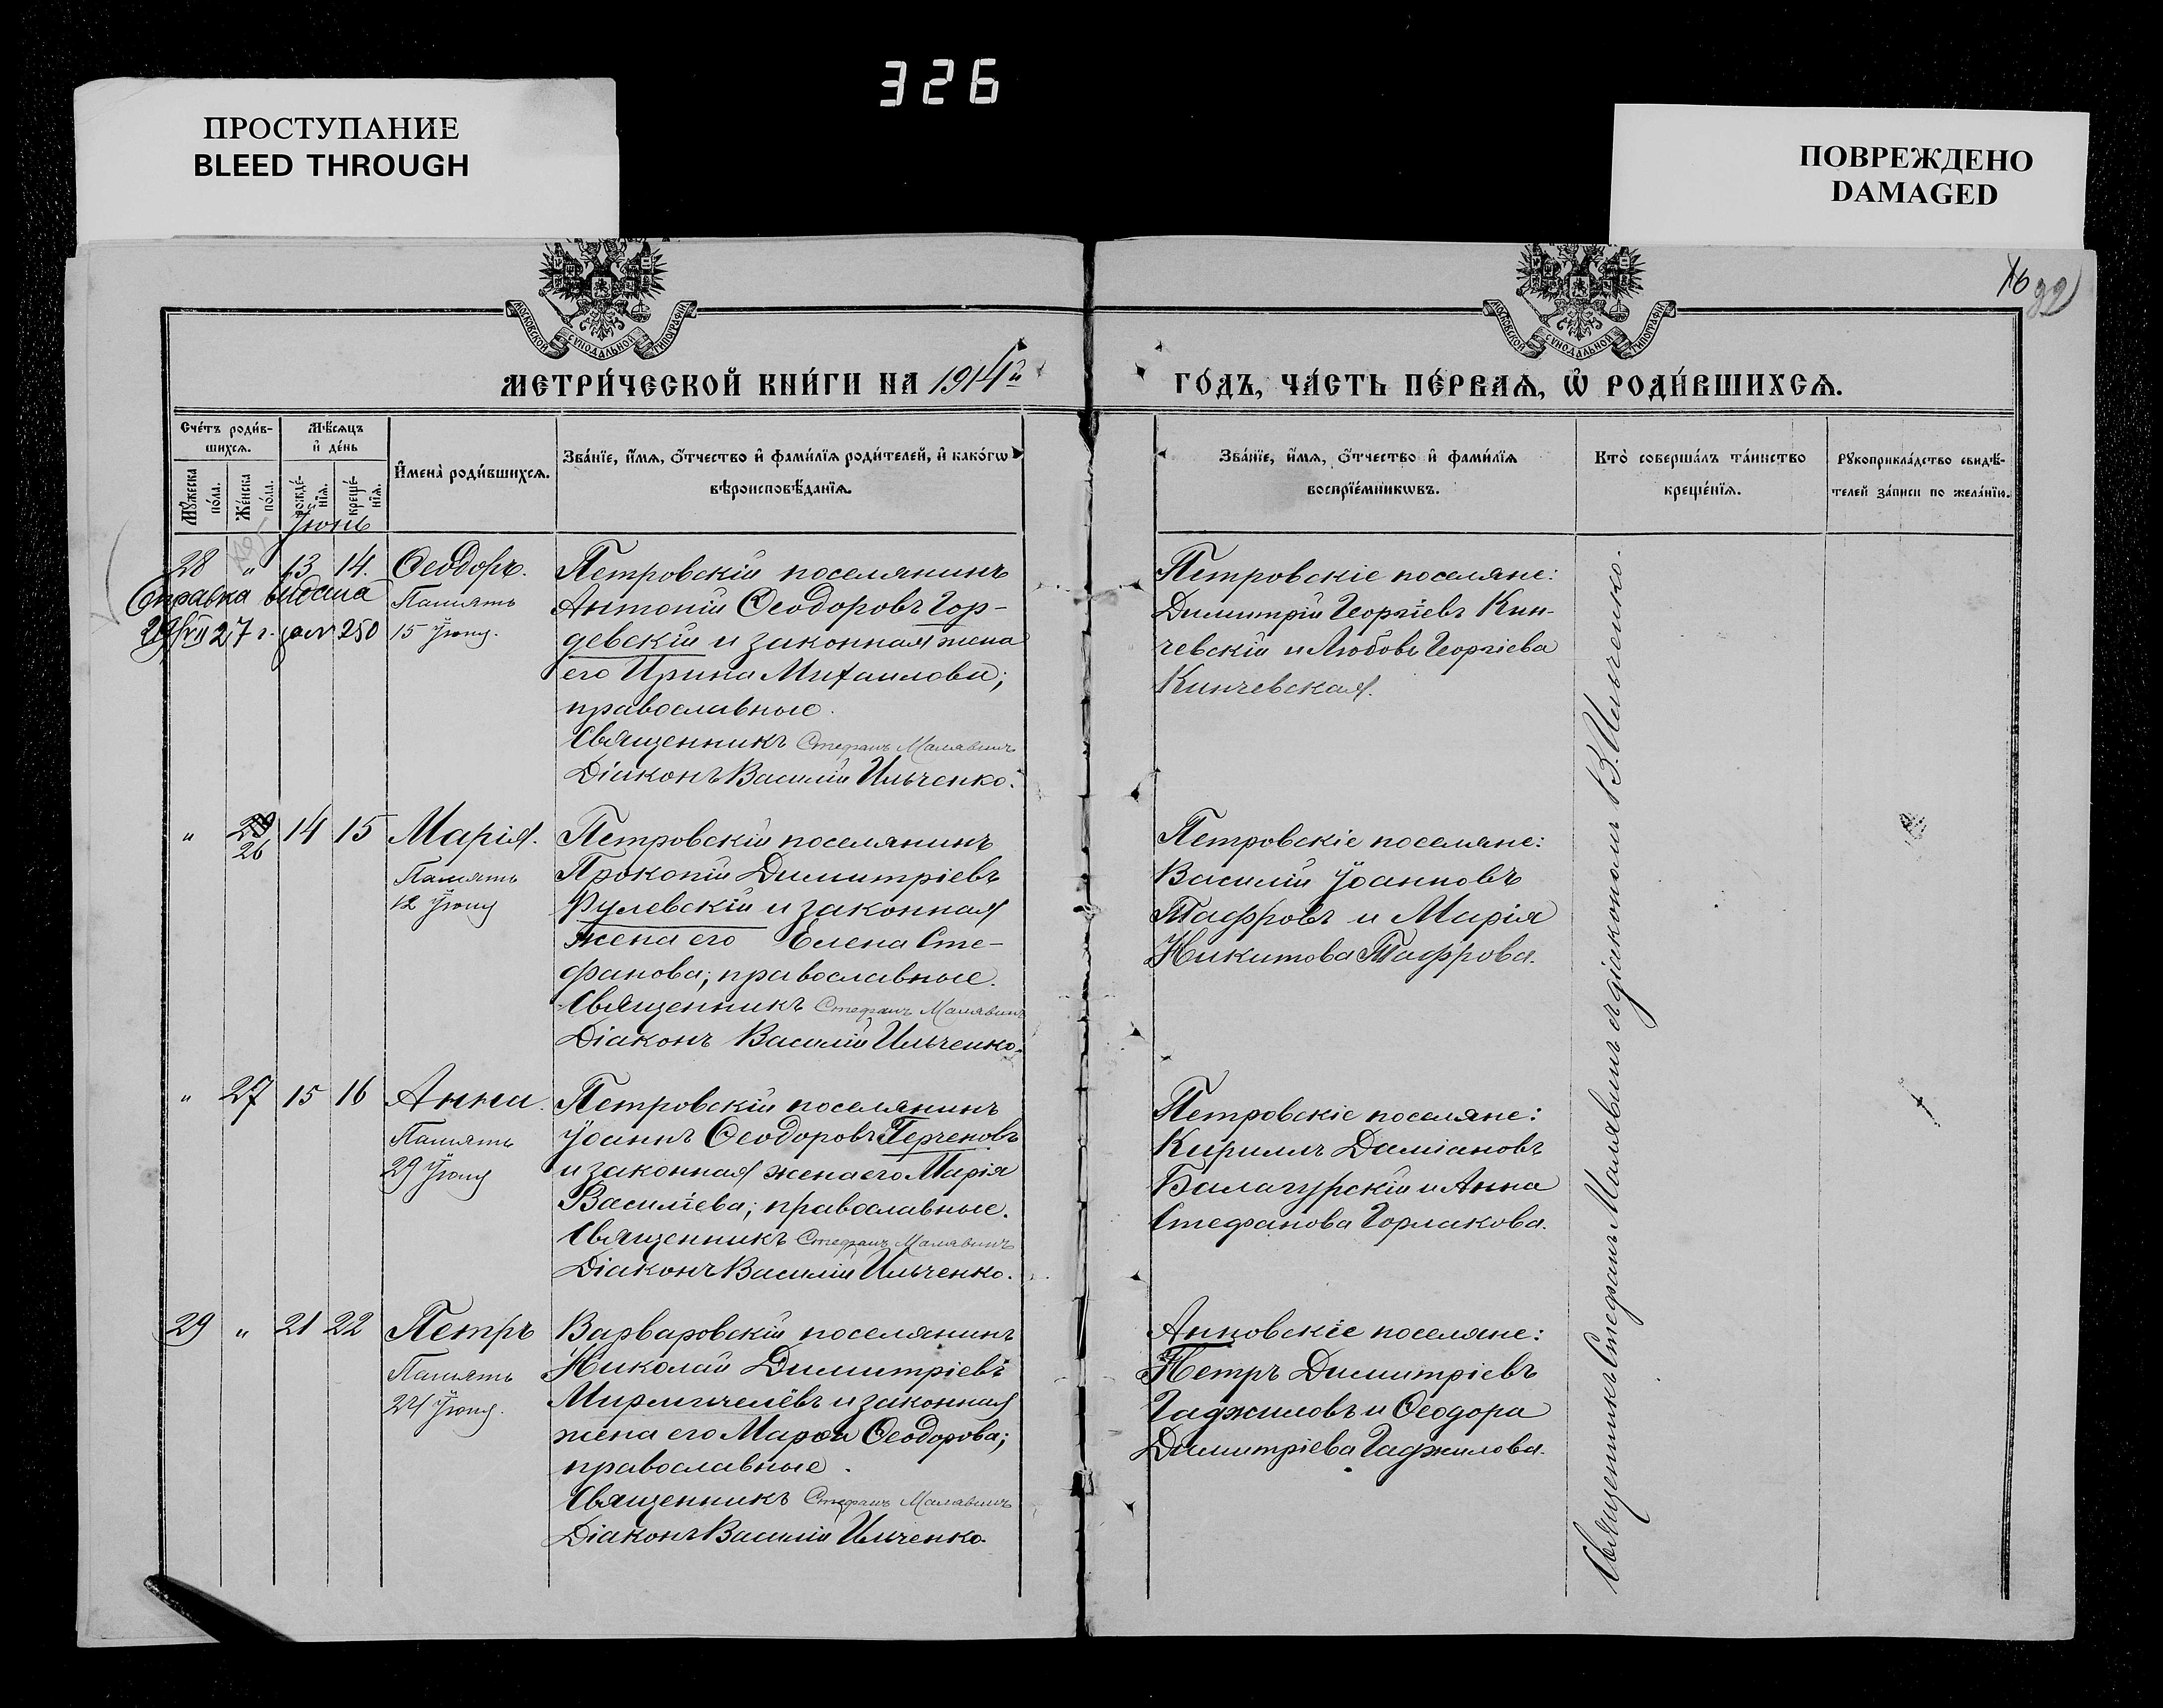 326
ПРОСТУПАНИЕ
BLEED THROUGH
ПОВРЕЖДЕНО
DAMAGED
16
32
МОСКОВСКОЙ СѴНОДАЛЬНОЙ ТИПОГРАФІИ
МОСКОВСКОЙ СѴНОДАЛЬНОЙ ТИПОГРАФІИ
МЕТРИ́ЧЕСКОЙ КНИ́ГИ НА 1914 й
ГО́ДЪ, ЧА́СТЬ ПЕ́РВАѦ, Ѽ РОДИ́ВШИХСѦ.
Сче́тъ роди́в-
шихсѧ.
Мѣ́сѧцъ
и҆ де́нь
Мꙋ́жеска по́ла.
Же́нска по́ла.
рожде́-нїѧ.
креще́-нїѧ.
И҆мена̀ роди́вшихсѧ.
Зва́нїе, и҆́мѧ, ѻ҆́тчество и҆ фами́лїѧ роди́телей, и҆ како́гѡ
вѣроисповѣ́данїѧ.
Зва́нїе, и҆́мѧ, ѻ҆́тчество и҆ фами́лїѧ
воспрїе́мникѡвъ.
Кто̀ соверша́лъ та́инство
креще́нїѧ.
Рꙋкоприкла́дство свидѣ́-
телей за́писи по жела́нїю.
Іюнь
28 " 13 14. Ѳеодоръ.
Справка выдана
27 г. за № 250
Память
15 Іюня.
Петровскій поселянинъ
Антоній Ѳеодоровъ Гор-
девскій и законная жена
его Ирина Михаилова;
православные.
Священникъ Стефанъ Малявинъ
Діаконъ Василій Ильченко.
Петровскіе поселяне:
Димитрій Георгіевъ Кин-
чевскій и Любовь Георгіева
Кинчевская.
" 26 14 15 Марія.
Память
12 Іюня
Петровскій поселянинъ
Прокопій Димитріевъ
Рулевскій и законная
жена его Елена Сте-
фанова; православные.
Священникъ Стефанъ Малявинъ
Діаконъ Василій Ильченко.
Петровскіе поселяне:
Василій Іоанновъ
Тафровъ и Марія
Никитова Тафрова.
" 27 15 16 Анна.
Память
29 Іюня
Петровскій поселянинъ
Іоаннъ Ѳеодоровъ Герченовъ
и законная жена его Марія
Василіева; православные.
Священникъ Стефанъ Малявинъ
Діаконъ Василій Ильченко.
Петровскіе поселяне:
Кириллъ Даміановъ
Балагурскій и Анна
Стефанова Горлакова.
29 " 21 22 Петръ
Память
24 Іюня.
Варваровскій поселянинъ
Николай Димитріевъ
Мирличелёвъ и законная
жена его Марѳа Ѳеодорова;
православные.
Священникъ Стефанъ Малявинъ
Діаконъ Василій Ильченко.
Анновскіе поселяне:
Петръ Димитріевъ
Гаджиловъ и Ѳеодора
Димитріева Гаджилова.
Священникъ Стефанъ Малявинъ съ діакономъ В. Ильченко.